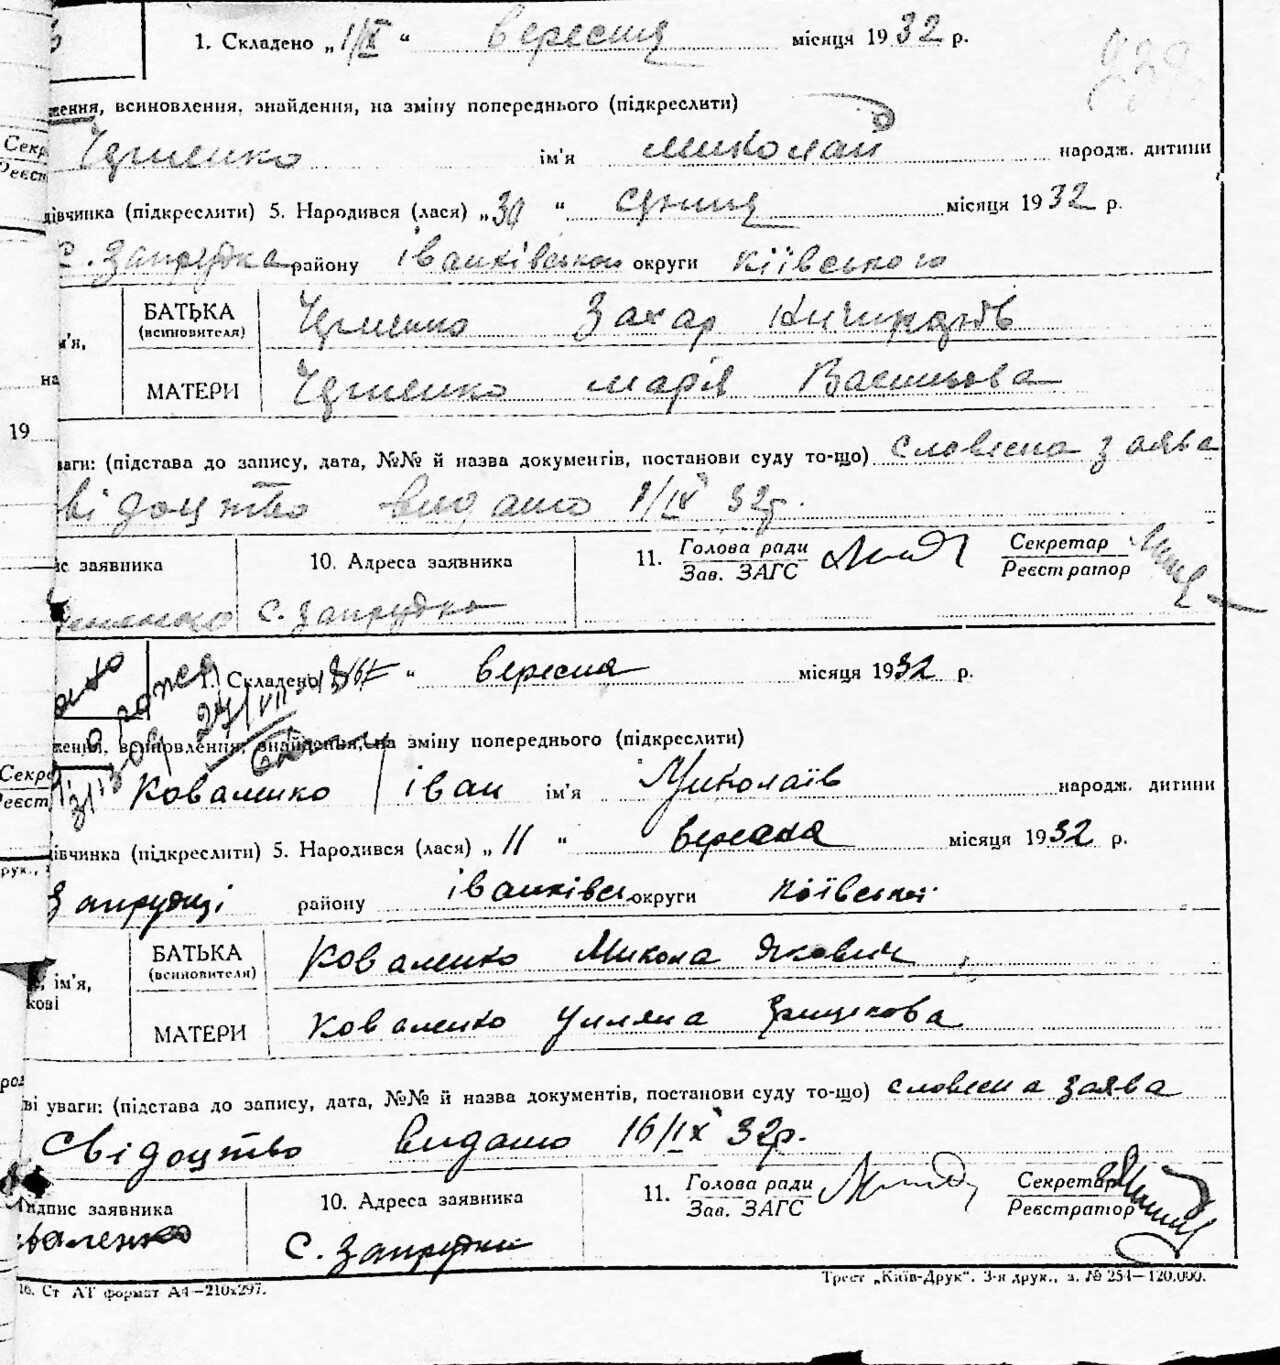 1. Складено „1/IX“ вересня місяця 1932 р.
ження, всиновлення, знайдення, на зміну попереднього (підкреслити)
Секр
Реєст
ім'я Миколай народж. дитини
дівчинка (підкреслити) 5. Народився (лася) „30“ серпня місяця 1932 р.
с. Запрудка району Іванківського округи Київського
м'я, БАТЬКА (всиновителя) Захар
на МАТЕРИ Марія Васильова
19
ваги: (підстава до запису, дата, №№ й назва документів, постанови суду то-що) словесна заява
свідоцтво видано 1/IX 32р.
с заявника 10. Адреса заявника 11. Голова ради Зав. ЗАГС Секретар Реєстратор
с. Запрудка
1. Складено “ вересня місяця 1932 р.
ження, всиновлення, знайдення, на зміну попереднього (підкреслити)
Секре
Реєст
Коваленко / іван ім'я Миколаїв народж. дитини
дівчинка (підкреслити) 5. Народився (лася) „11“ вересня місяця 1932 р.
Запрудці району іванківсь округи київської
ім'я, БАТЬКА (всиновителя) Коваленко Микола Якович
кові МАТЕРИ Коваленко Уляна
ві уваги: (підстава до запису, дата, №№ й назва документів, постанови суду то-що) словесна заява
Свідоцтво видано 16/IX 32р.
Підпис заявника 10. Адреса заявника 11. Голова ради Зав. ЗАГС Секретар Реєстратор
Коваленко с. Запрудка
16. Ст АТ формат А4—210х297. Трест „Київ-Друк“. 3-я друк., з. № 254—120.000.